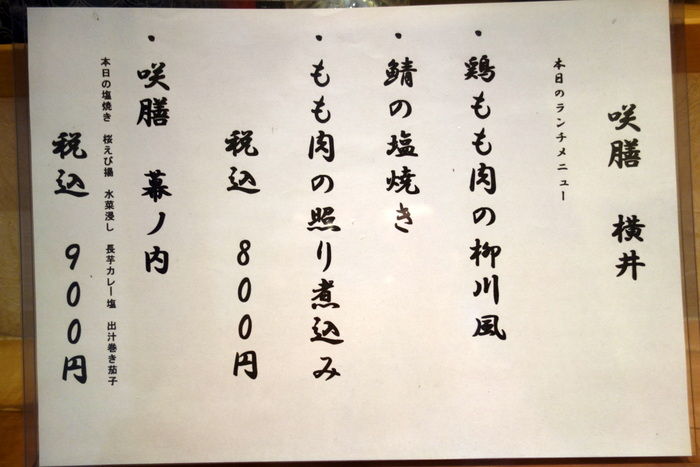 咲膳 横井
本日のランチメニュー
・鶏もも肉の柳川風
・鯖の塩焼き
・もも肉の照り煮込み
税込 800円
・咲膳 幕ノ内
本日の塩焼き 桜えび揚 水菜浸し 長芋カレー塩 出汁巻き茄子
税込 900円